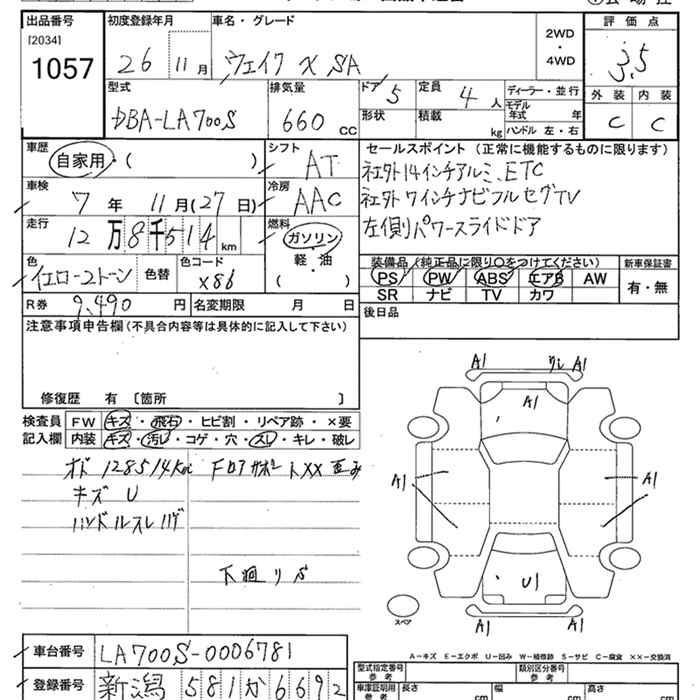 出品番号 初度登録年月 車名・グレード 評価点
[2034]
1057
26 11月 ウェイク X SA
2WD
・
4WD
3.5
外装 内装
C C
型式 排気量 ドア 定員 ディーラー・並行
DBA-LA700S 660 CC 5 4 人
モデル年式 年
形状 積載 kg ハンドル 左・右
車歴 シフト セールスポイント (正常に機能するものに限ります)
自家用・( ) AT
社外14インチアルミ、ETC
車検 冷房
7年 11月(27日) AAC
社外7インチナビフルセグTV
走行 燃料
12万8千514km ガソリン
左側パワースライドドア
軽・油
( )
色 色替 色コード
イエロー2トーン X86
装備品(純正品に限り○をつけてください) 新車保証書
PS PW ABS エアB AW 有・無
SR ナビ TV カワ
R券 9,490円 名変期限 月 日
後日品
注意事項申告欄(不具合内容等は具体的に記入して下さい)
修復歴 有〔箇所 〕
検査員 FW キズ・飛石・ヒビ割・リペア跡・×要
記入欄 内装 キズ・汚レ・コゲ・穴・スレ・キレ・破レ
オド 128514Km FロアサポートXX 歪み
キズ U
ハンドルスレハゲ
下廻り
A1 A1
A1
A1 A1
U1
A1 A1
スペア
A－キズ E－エクボ U－凹み W－補修跡 S－サビ C－腐食 ××－交換済
車台番号 LA700S-0006781
型式指定番号 参考 類別区分番号 参考
登録番号 新潟 581 か 6692
車庫証明用 参考 長さ cm 幅 cm 高さ cm